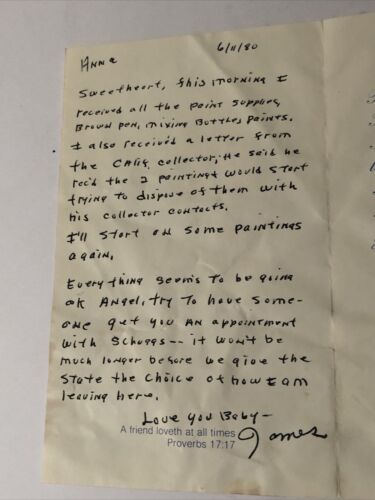 6/11/80
Anna
Sweetheart, this morning I
received all the paint supplies,
Brown pen, mixing Bottles paints.
I also received a letter from
the Calif. collector, He said he
rec'd the 2 paintings would start
trying to dispose of them with
his collector contacts.
I'll start on some paintings
again.
Everything seems to be going
ok Angel, try to have some-
one get you an appointment
with Schuggs -- it won't be
much longer before we give the
State the choice of how I am
leaving here.
Love you Baby -
A friend loveth at all times
Proverbs 17:17
James